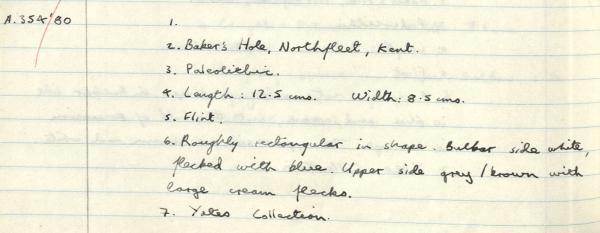 A.354'80
1.
2. Baker's Hole, Northfleet, Kent.
3. Paleolithic.
4. Length: 12.5 cms. Width: 8.5 cms.
5. Flint.
6. Roughly rectangular in shape. Bulbar side white,
flecked with blue. Upper side grey/brown with
large cream flecks.
7. Yates Collection.